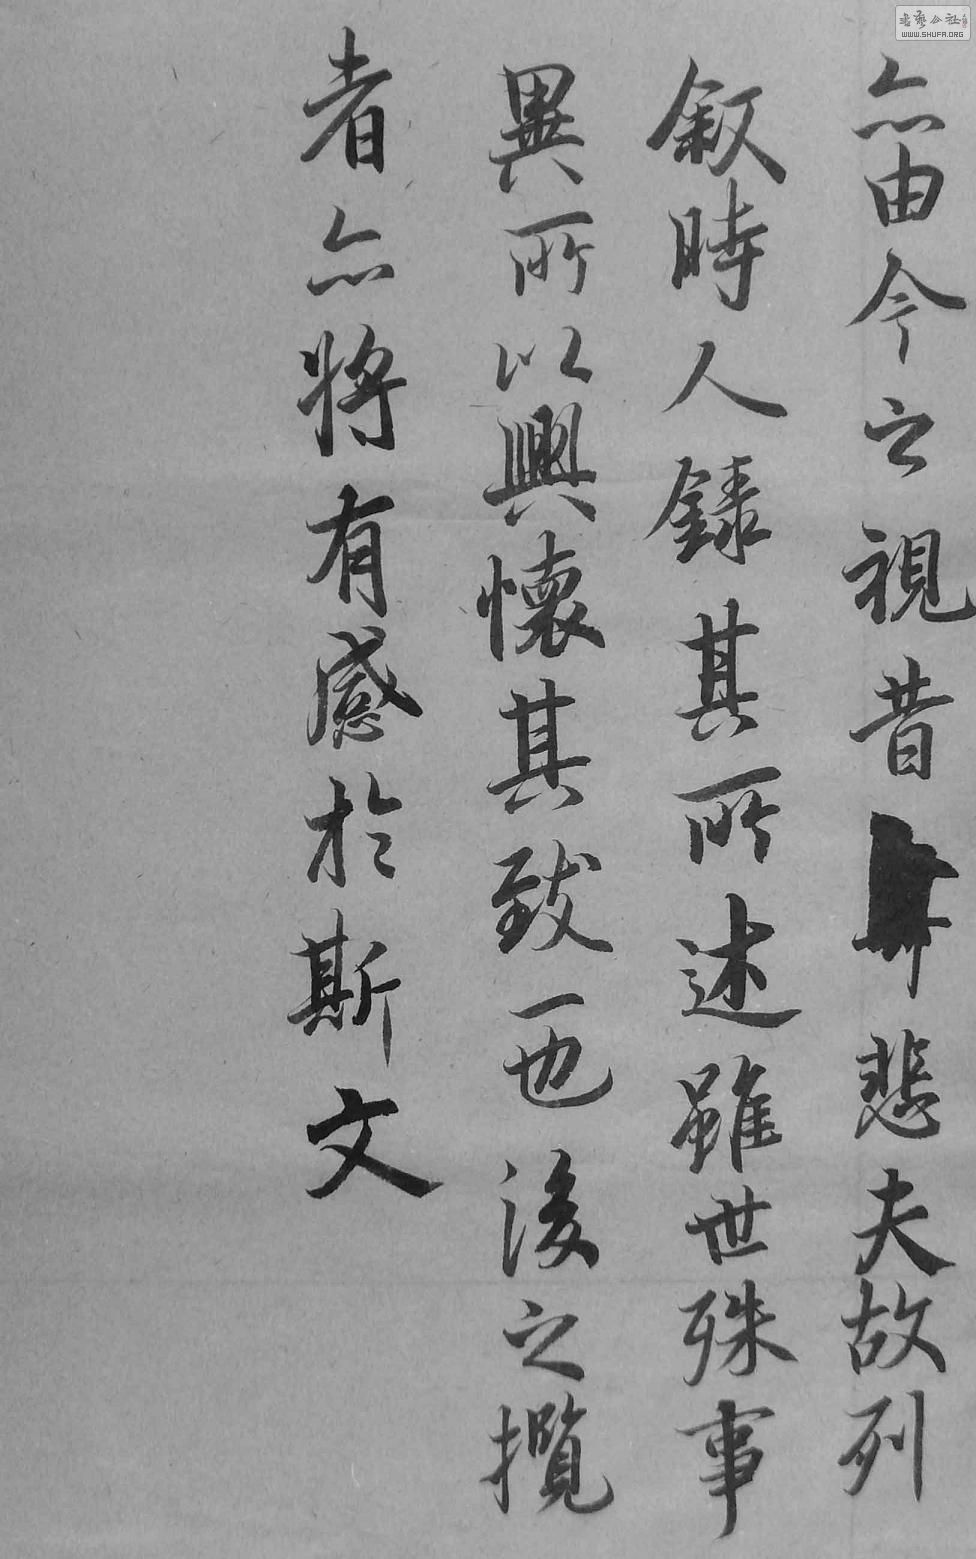 亦由今之視昔悲夫故列
敘時人錄其所述雖世殊事
異所以興懷其致一也後之攬
者亦將有感於斯文
書藝公社
WWW.SHUFA.ORG